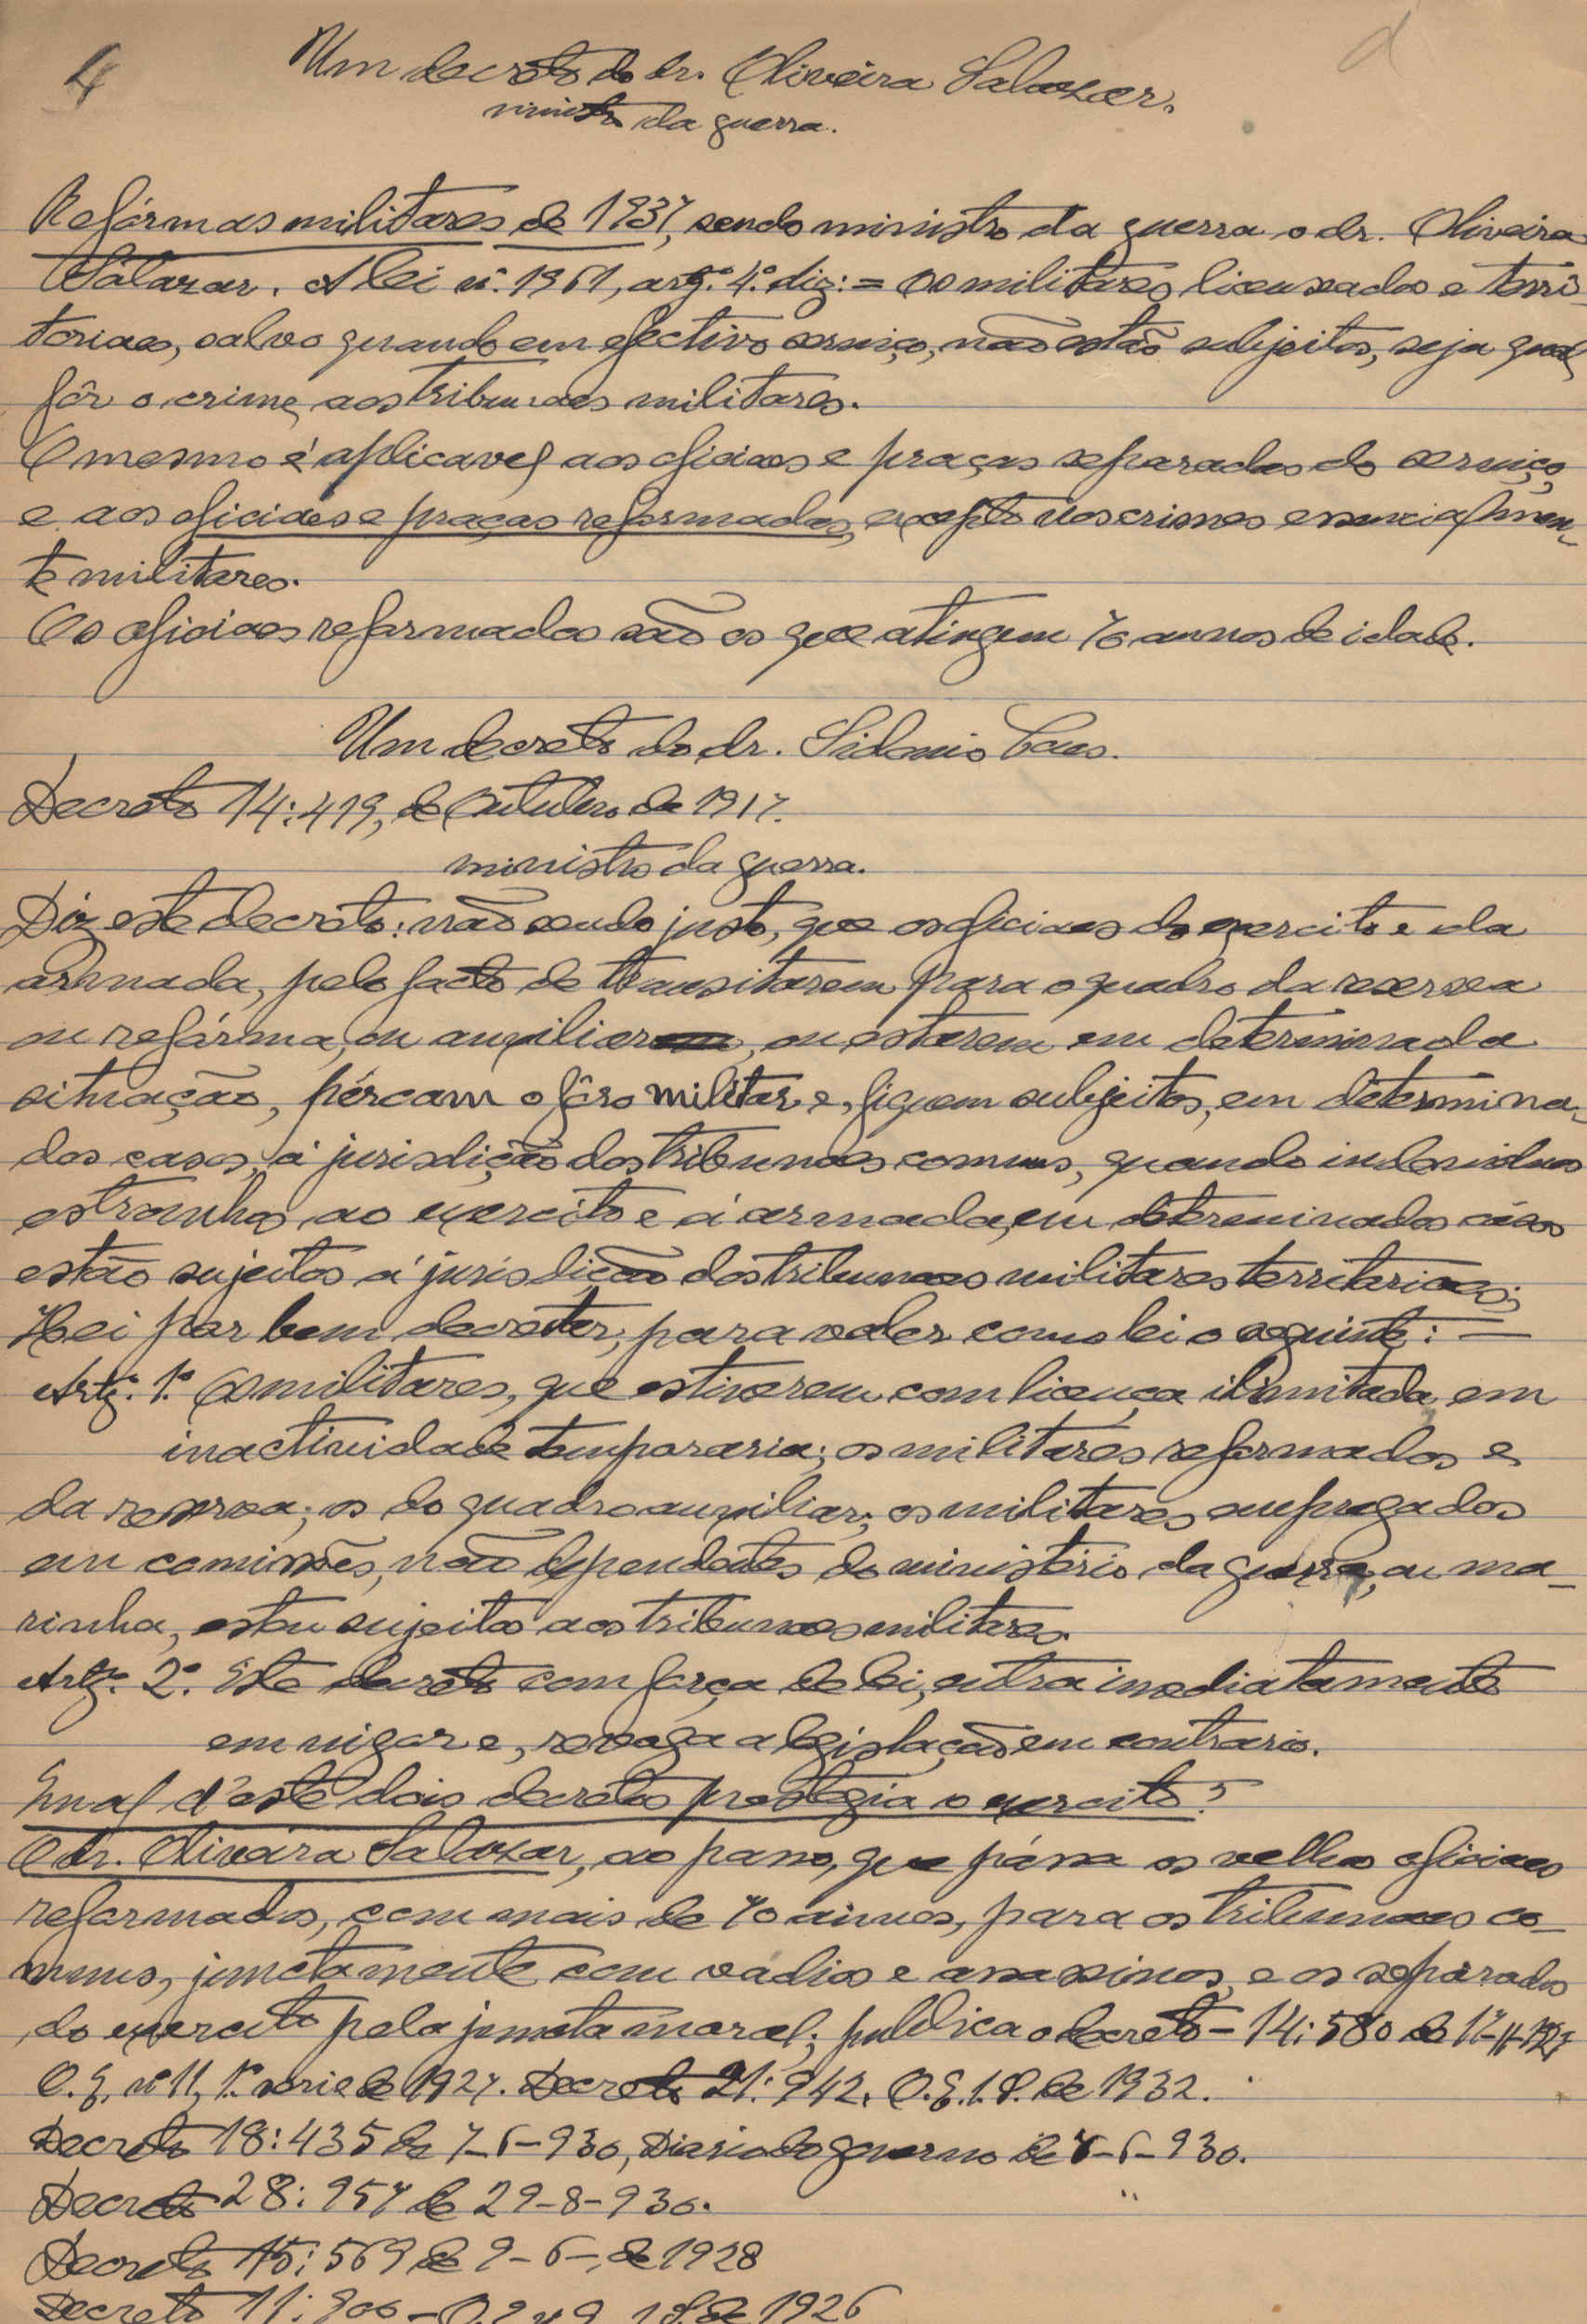 4
d
Um decreto do dr. Oliveira Salazar.
ministro da guerra.
Refórmas militares de 1937, sendo ministro da guerra o dr. Oliveira
Salazar. A lei n.º 1961, artg.º 4.º diz: = Os militares licenseados e terri-
toriaes, salvo quando em efectivo serviço, não estão subjeitos, seja qual
fôr o crime, aos tribunaes militares.
O mesmo é aplicavel aos oficiaes e praças separados do serviço,
e aos oficiaes e praças reformados, excepto nos crimes essencialmen-
te militares.
Os oficiaes reformados são os que atingem 70 annos de idade.
Um decreto do dr. Sidonio Paes.
Decreto 14:419, de Outubro de 1917.
ministro da guerra.
Diz este decreto: não sendo justo, que os oficiaes do exercito e da
armada, pelo facto de transitarem para o quadro da reserva
ou refórma, ou auxiliar, ou estarem em determinada
situação, pércam o fôro militar e, fiquem subjeitos, em determina-
dos casos, á jurisdição dos tribunaes comuns, quando individuos
estranhos ao exercito e á armada, em determinados casos
estão sujeitos á jurisdição dos tribunaes militares territoriaes;
Hei por bem decretar, para valer como lei o seguinte: —
Artg.º 1.º Os militares, que estiverem com licença ilimitada, em
inactividade temporaria; os militares reformados e
da reserva; os do quadro auxiliar; os militares empregados
em comissões, não dependentes do ministério da guerra, ou ma-
rinha, estão sujeitos aos tribunaes militares.
Artg.º 2.º Este decreto com força de lei, entra imediatamente
em vigor e, revoga a legislação em contrario.
Qual d'este dois decretos prestegia o exercito?
O dr. Oliveira Salazar, ao passo, que passa os velhos oficiaes
reformados, com mais de 70 annos, para os tribunaes co-
muns, junctamente com vadios e assassinos, e os separados
do exercito pela juncta moral; publica o decreto - 14:580 de 17-11-1927
O.E. nº 11, 1.ª serie de 1927. Decreto 21:942. O.E. 1.S. de 1932.
Decreto 18:435 de 7-6-930, Diario do governo de 7-6-930.
Decreto 28:957 de 29-8-930.
Decreto 15:569 de 9-6-, de 1928
Decreto 11:900 - O.E. nº 9, 1.S. de 1926